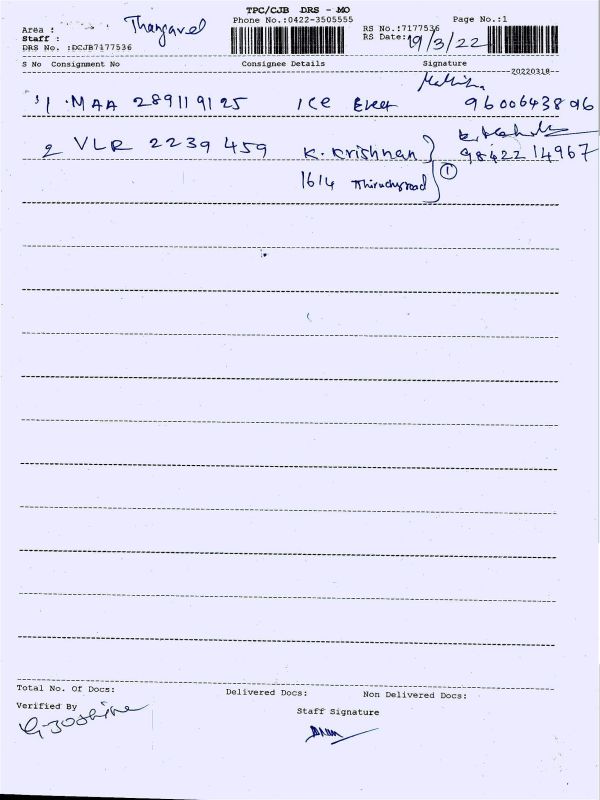 TPC/CJB DRS - MO
Phone No.:0422-3505555 Page No.:1
Area : Thangavel RS No.:7177536
Staff : RS Date: 19/3/22
DRS No. :DCJB7177536
S No Consignment No Consignee Details Signature
20220318
1 MAA 289119125 ICE 9600643896
2 VLR 2239459 K. Krishnan 9842214967
1614 Thiruchyroad 1
Total No. Of Docs: Delivered Docs: Non Delivered Docs:
Verified By Staff Signature